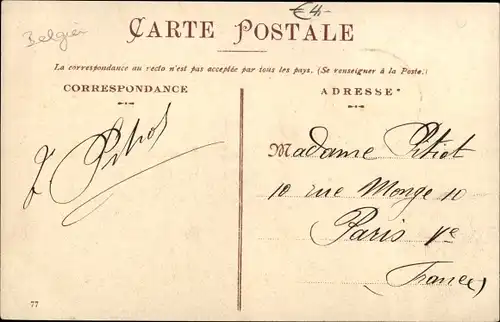 €4.-
Belgien
CARTE POSTALE
La correspondance au recto n'est pas acceptée par tous les pays. (Se renseigner à la Poste.)
CORRESPONDANCE
ADRESSE
Madame Pitiot
10 rue Monge 10
Paris Ve
(France)
77